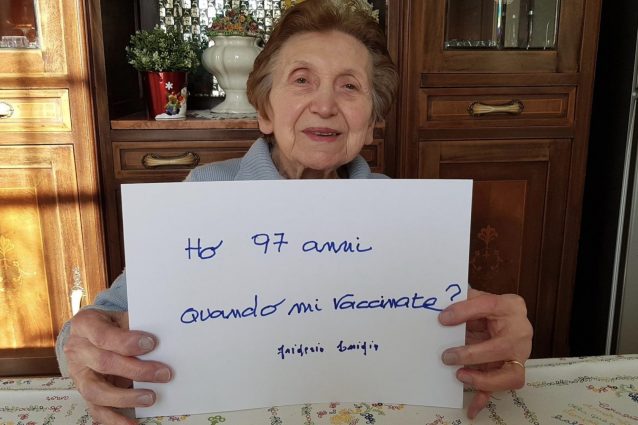 Ho 97 anni
quando mi vaccinate?